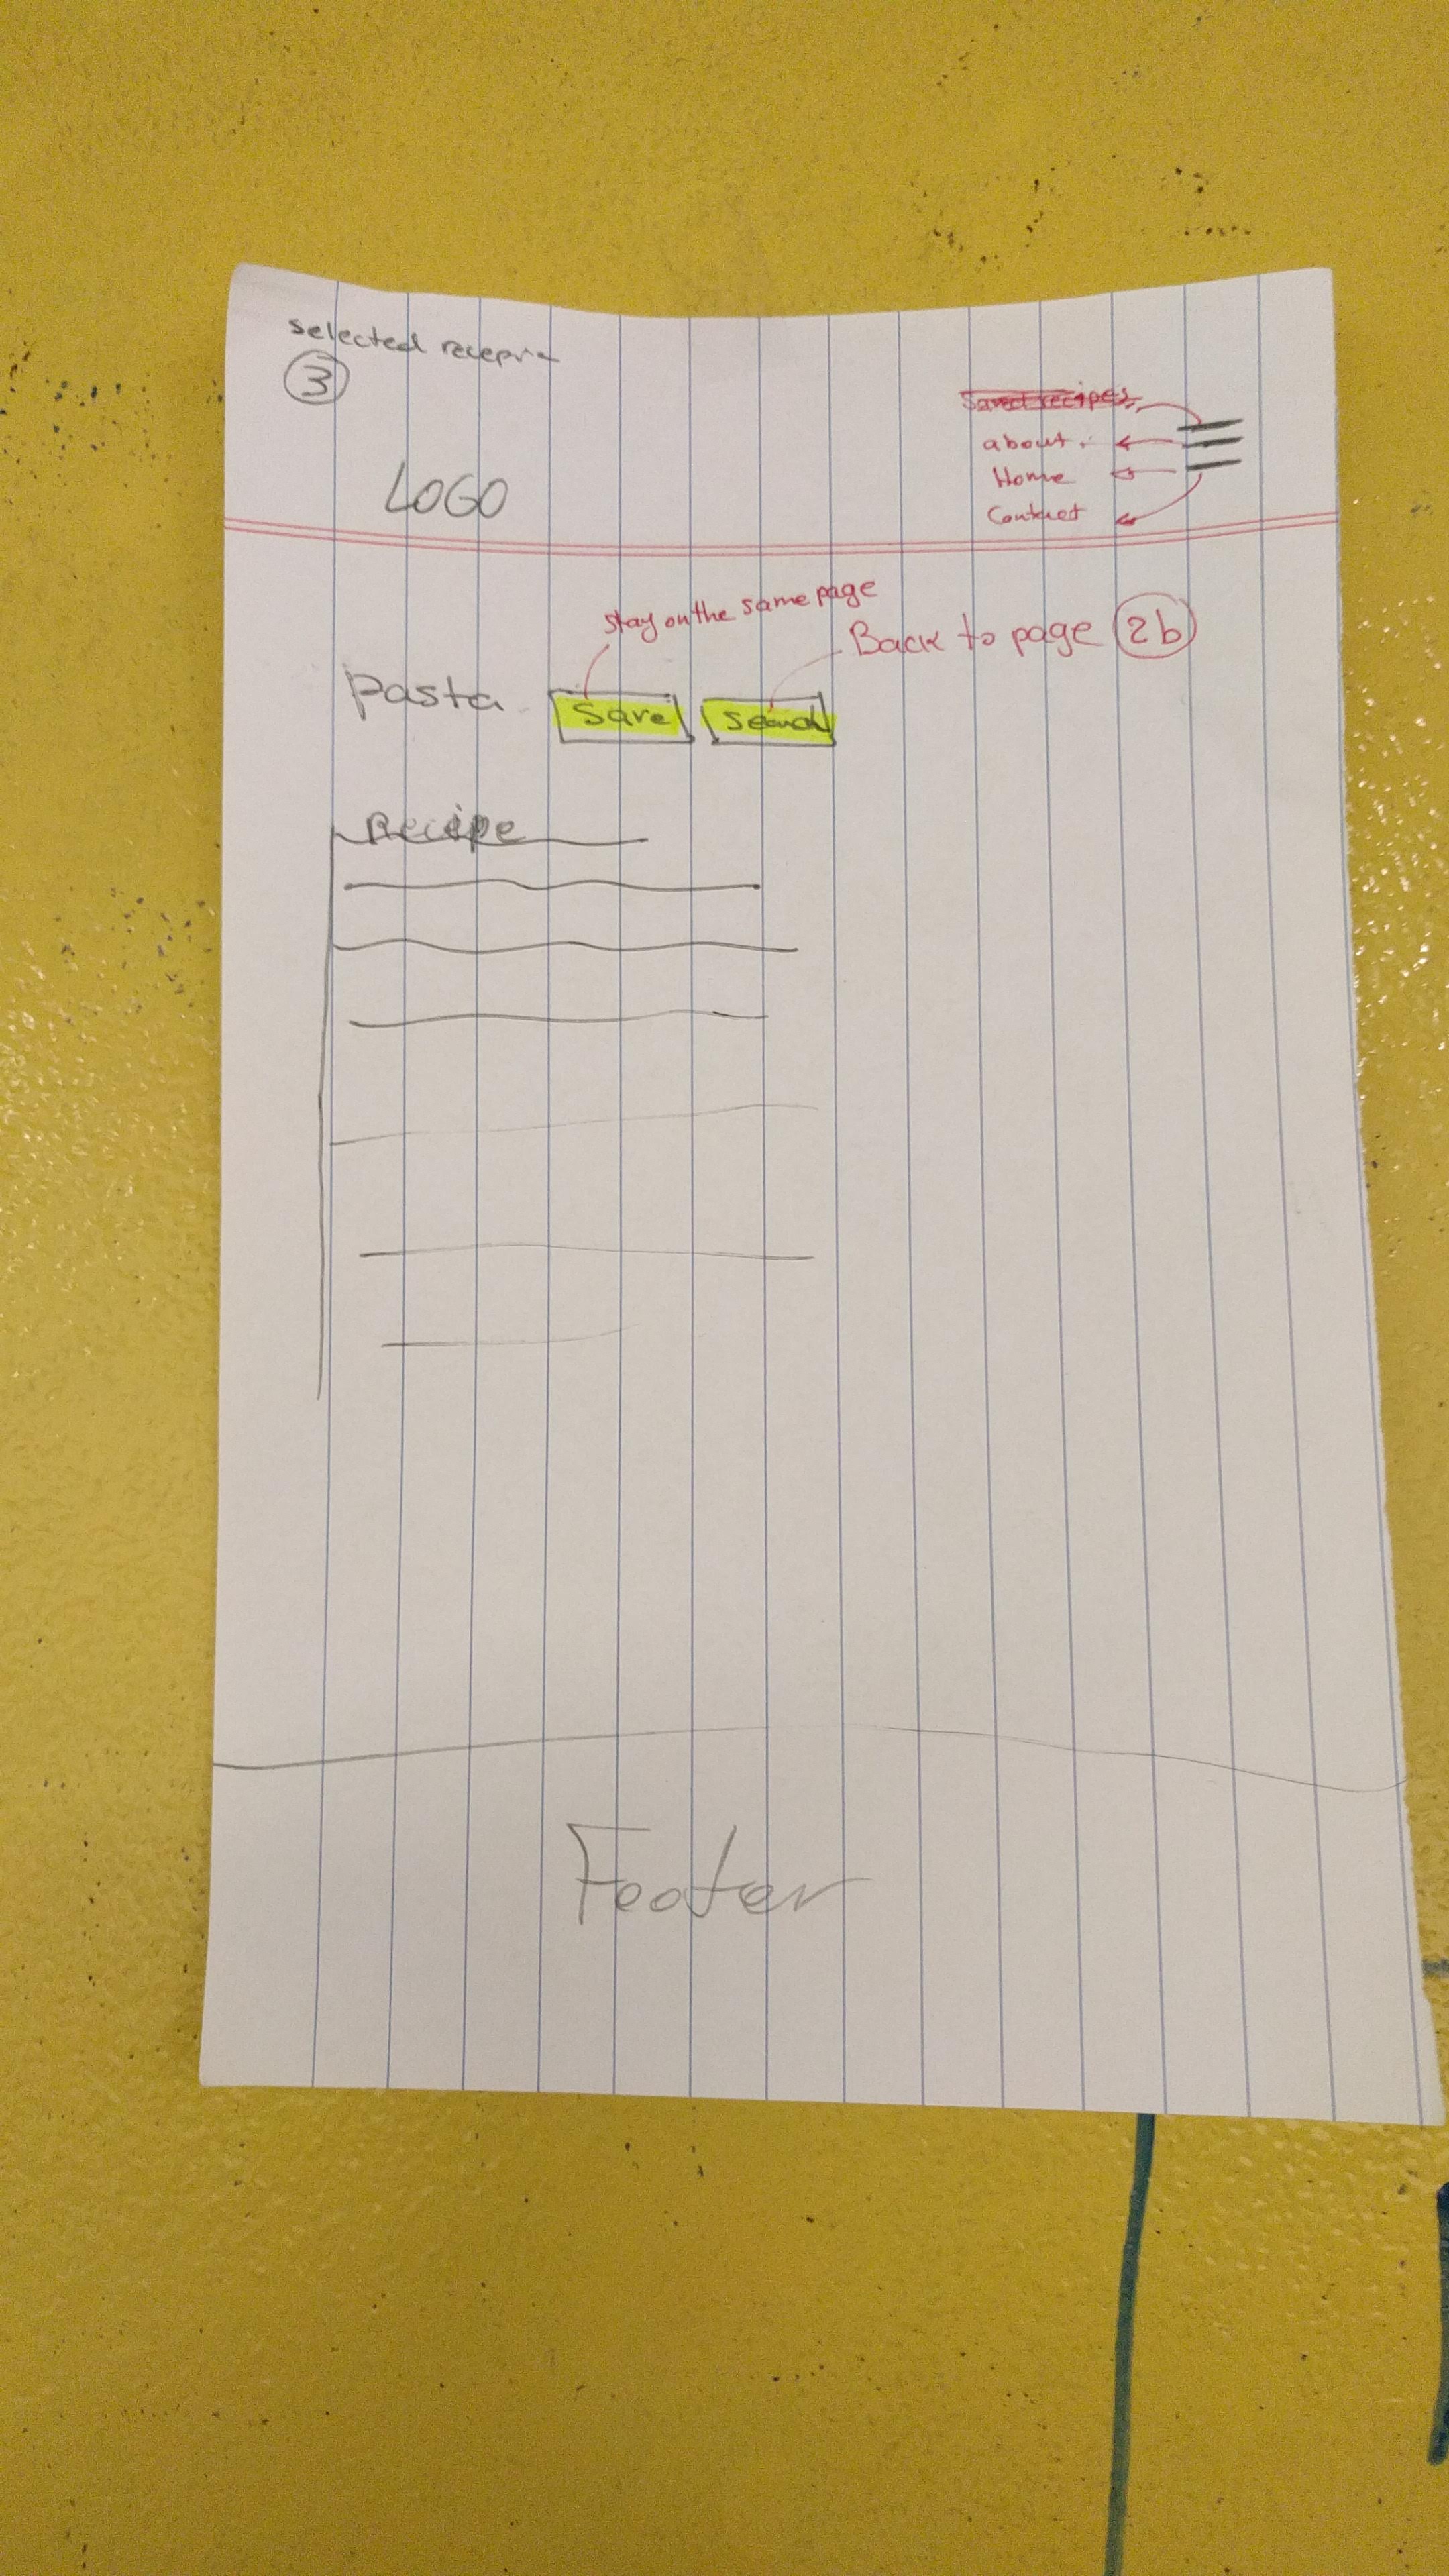 selected
3
Saved recipes
about
Home
Contact
LOGO
stay on the same page
Back to page 2b
pasta
Save
Search
Recipe
Footer